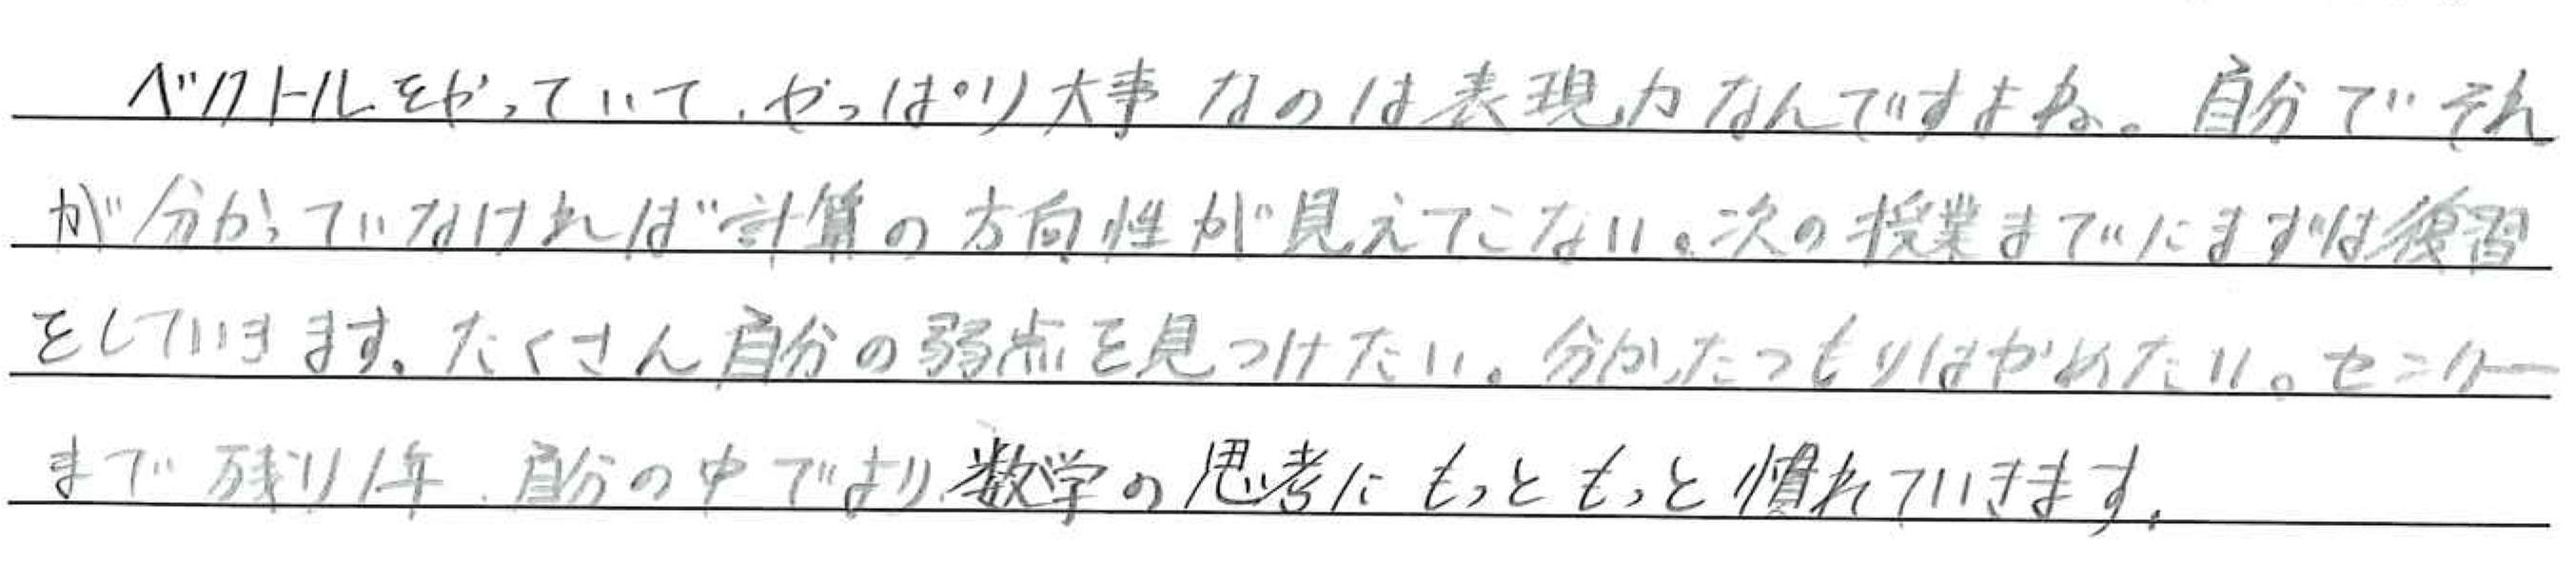 ベクトルをやっていて、やっぱり大事なのは表現力なんですよね。自分でそれ
が分かっていなければ計算の方向性が見えてこない。次の授業までにまずは復習
をしていきます。たくさん自分の弱点を見つけたい。分かったつもりはやめたい。センター
まで残り1年、自分の中でより数学の思考にもっともっと慣れていきます。